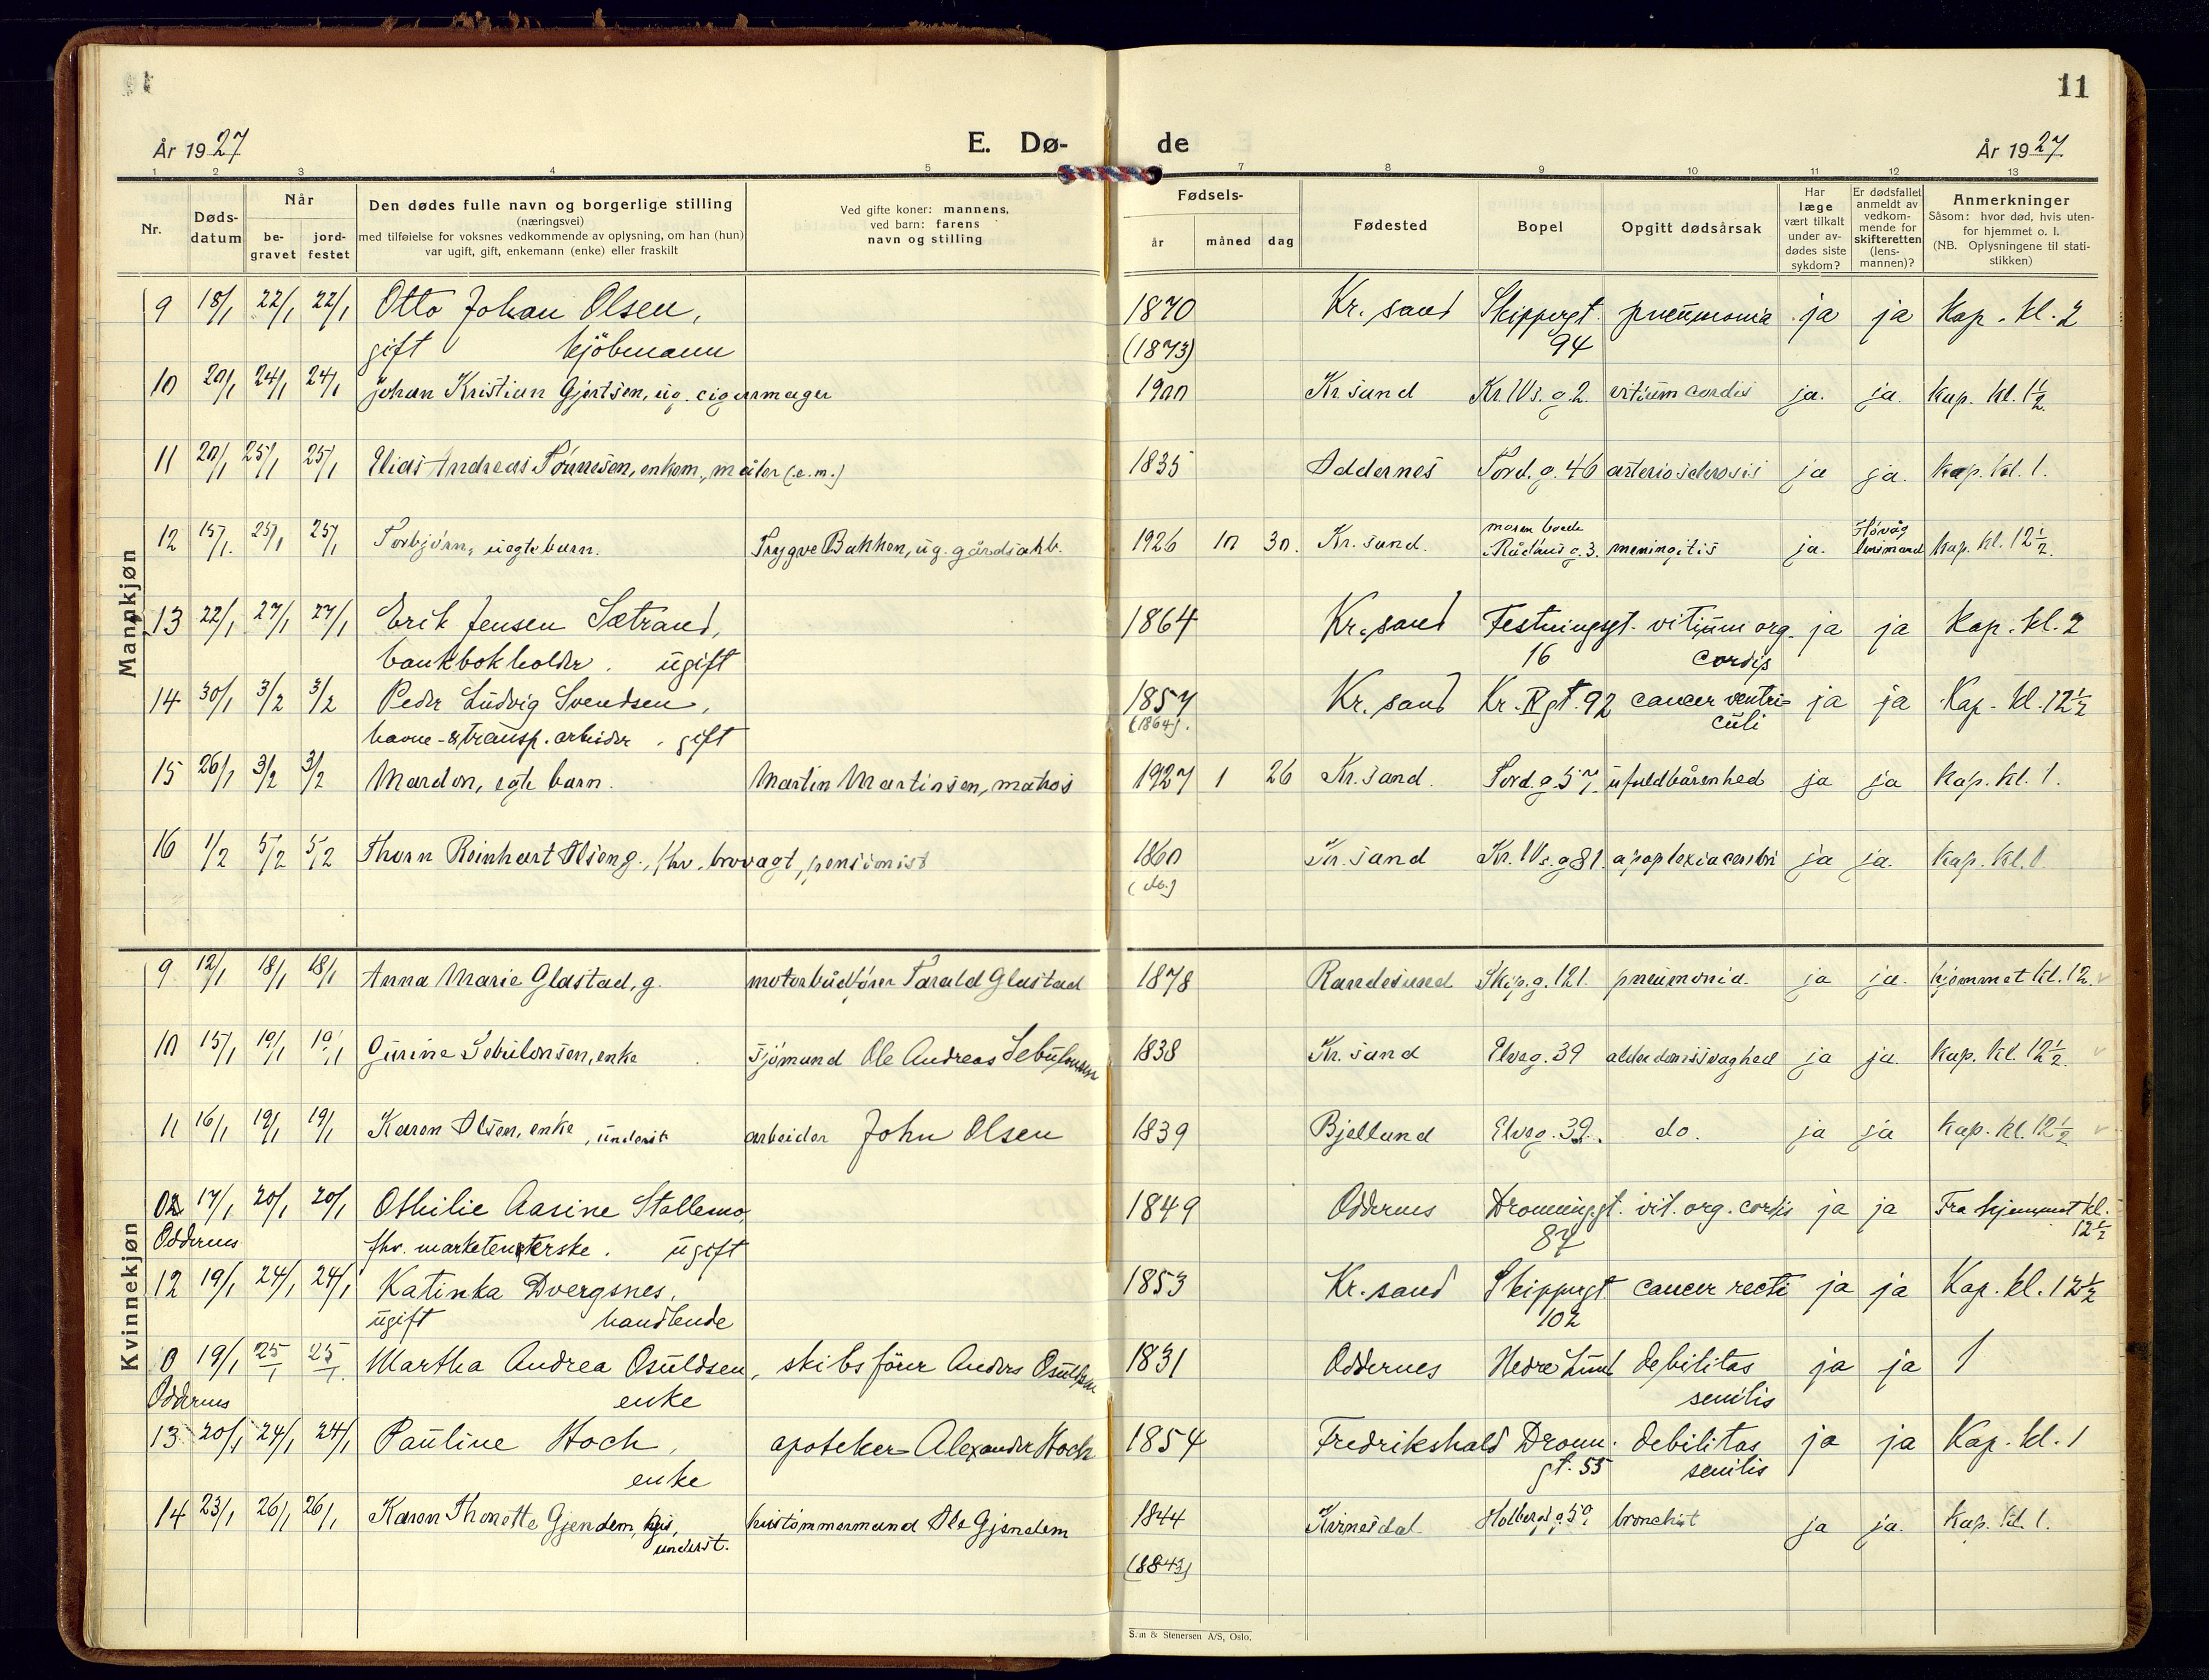 11
År 1927 E. Dø- de År 1927
1 2 3 4 5 6 7 8 9 10 11 12 13
Nr. Døds-datum Når be-gravet jord-festet
Den dødes fulle navn og borgerlige stilling
(næringsvei)
med tilføielse for voksnes vedkommende av oplysning, om han (hun)
var ugift, gift, enkemann (enke) eller fraskilt
Ved gifte koner: mannens,
ved barn: farens
navn og stilling
Fødsels- år måned dag
Fødested
Bopel
Opgitt dødsårsak
Har læge vært tilkalt under av-dødes siste sykdom?
Er dødsfallet anmeldt av vedkom-mende for skifteretten (lens-mannen)?
Anmerkninger
Såsom: hvor død, hvis uten-
for hjemmet o. l.
(NB. Oplysningene til stati-
stikken)
Mannkjøn
9 18/1 22/1 22/1 Otto Johan Olsen, 1870 Kr. sand Skippergt. pneumonia ja ja Kap. kl. 2
gift kjöbmann (1873) 94
10 20/1 24/1 24/1 Johan Kristian Gjertsen, ug. cigarmager 1900 Kr. sand Kr. IVs. g. 2. vitium cordis ja. ja. Kap. kl. 1½
11 20/1 25/1 25/1 Elias Andreas Tönnesen, enkem., måler (e.m.) 1835 Oddernes Tord. g. 46 arteriosclerosis ja ja. Kap. kl. 1.
12 15/1 25/1 25/1 Torbjörn, uegte barn. Trygve Bakken, ug. gårdsarb. 1926 10 30. Kr. sand. moren boede Rådhus g. 3. meningitis ja. Høvåg lensmand Kap. kl. 12½
13 22/1 27/1 27/1 Erik Jensen Sætrand, 1864 Kr. sand Festningsgt. vitium org. ja ja Kap. kl. 2
bankbokholder. ugift 16 cordis
14 30/1 3/2 3/2 Peder Ludvig Svendsen, 1857 Kr. sand Kr. IV gt. 92 cancer ventri- ja ja Kap. kl. 12½
havne- & transp. arbeider. gift (1864). culi
15 26/1 3/2 3/2 Mardon, egte barn. Martin Martinsen, matros 1927 1 26 Kr. sand. Tord. g. 57. ufuldbårenhed ja ja Kap. kl. 1.
16 1/2 5/2 5/2 Thorn Reinhart Olsen g., fhv. brovagt, pensionist 1860 Kr. sand Kr. IVs. g 81. apoplexia cerebri ja ja. Kap. kl. 1.
(do.)
Kvinnekjøn
9 12/1 18/1 18/1 Anna Marie Glastad, g. motorbådförer Tarald Glastad 1878 Randesund Skip. g. 121. pneumonia. ja ja. hjemmet kl. 12.
10 15/1 19/1 19/1 Gurine Sebulonsen, enke sjömand Ole Andreas Sebulonsen 1838 Kr. sand Elveg. 39 alderdomssvaghed ja ja Kap. kl. 12½
11 16/1 19/1 19/1 Karen Olsen, enke, underst. arbeider John Olsen 1839 Bjelland Elveg. 39. do. ja ja Kap. kl. 12½
02 17/1 20/1 20/1 Othilie Aasine Stallemo, 1849 Oddernes Dronningsgt. vit. org. cordis ja ja Fra hjemmet kl. 12½
Oddernes fhv. marketenterske. ugift 87
12 19/1 24/1 24/1 Katinka Dvergsnes, 1853 Kr. sand Skippergt cancer recti ja ja Kap. kl. 12½
ugift handlende 102
0 19/1 25/1 25/1 Martha Andrea Osuldsen, skibsförer Anders Osuldsen 1831 Oddernes Nedre Lund debilitas ja ja 1
Oddernes enke senilis
13 20/1 24/1 24/1 Pauline Hoch, apoteker Alexander Hoch 1854 Fredrikshald Dronn. debilitas ja ja Kap. kl. 1
enke gt. 55 senilis
14 23/1 26/1 26/1 Karen Thonette Gjendem, underst. hustömmermand Ole Gjendem 1844 Kvinesdal Holbergs g. 50 bronchit ja ja. Kap. kl. 1.
(1843)
S. m & Stenersen A/S, Oslo.